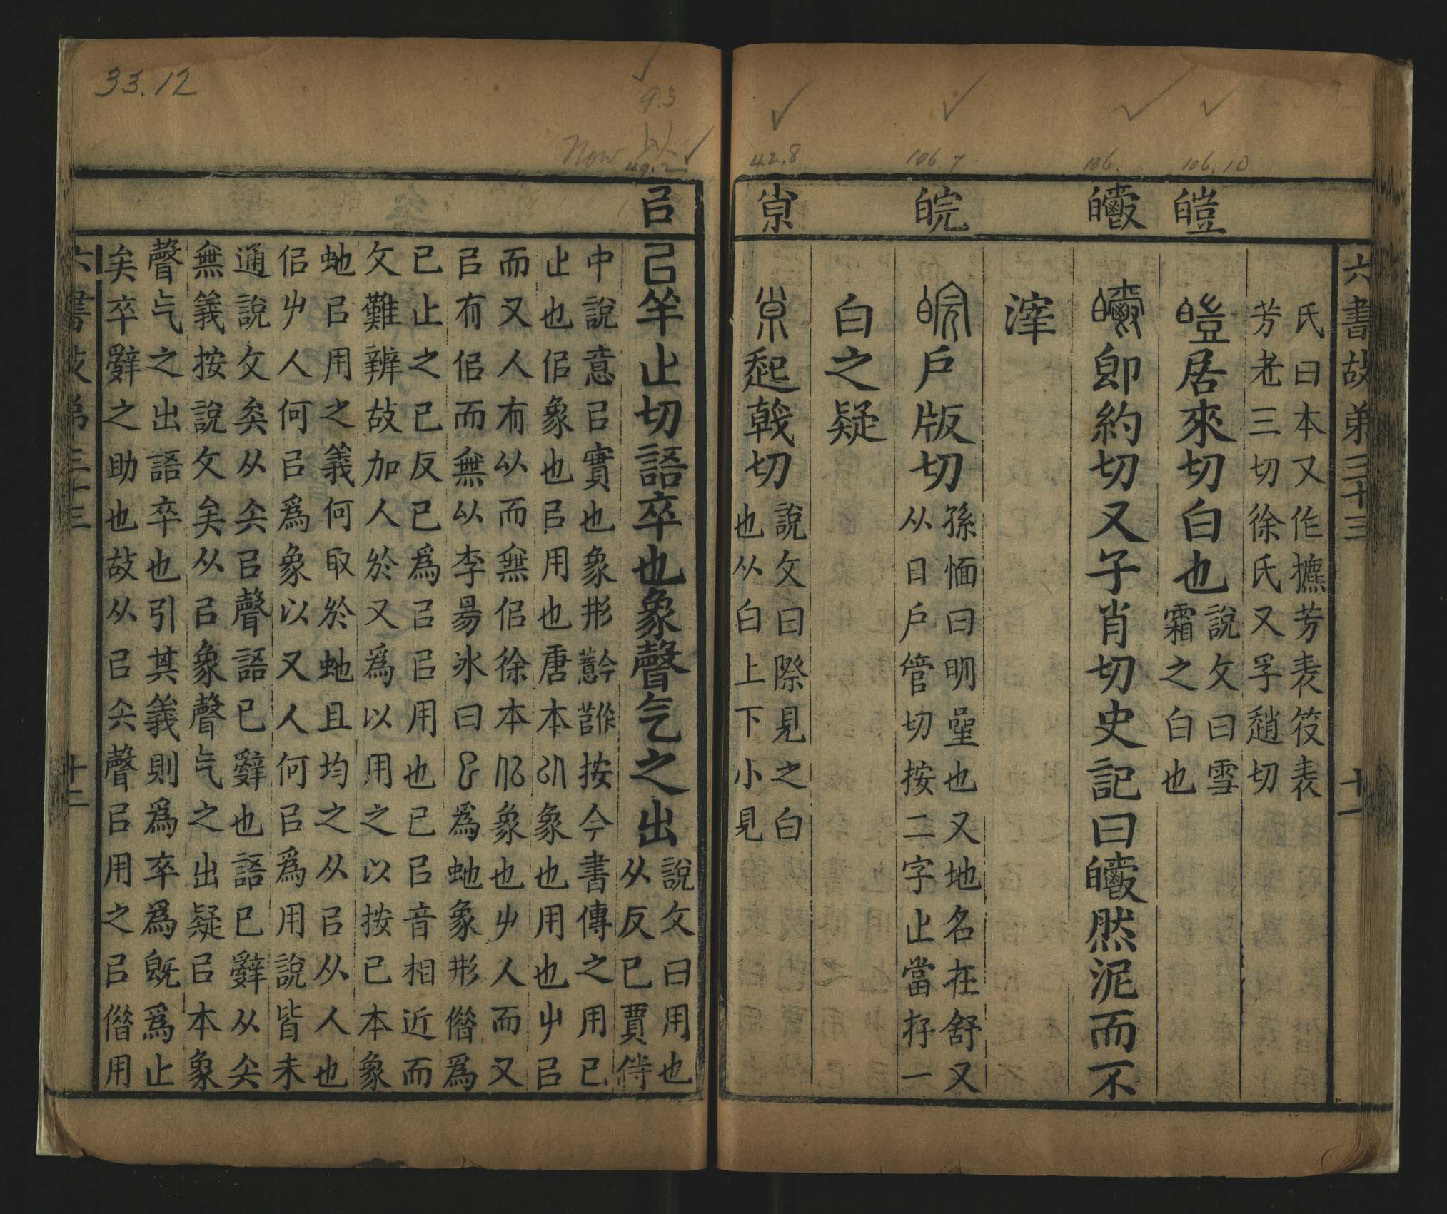 33.12
9.3
Now
49.2
42.8
106.7
106.
106.10
皚
皭
皖
㡀
㠯
六書故弟三十三
十一
氏曰本又作攄芳表笅表
芳老三切徐氏又孚趫切
皚居來切白也
說文曰雪
霜之白也
皭即約切又子肖切史記曰皭然泥而不
滓
皖戶版切
孫愐曰明星也又地名在舒又
从目戶管切按二字止當存一
白之疑
起戟切
說文曰際見之白
也从白上下小見
㠯羊止切語卒也象聲气之出
說文曰用也
从反已賈侍
中說意㠯實也象形按今書傳之用已
止也佀象也㠯用也唐本象也用也㠯
而又人有以而無佀徐本象也人而又
㠯有佀而無以李昜冰曰㠯爲虵象形借爲
已止之已反已爲㠯㠯用也已㠯音相近而
文難辨故加人於又爲以用之以按已本象
虵㠯用之義何取於虵且均之从㠯从人也
佀人何㠯爲象以又人何㠯爲用說皆未
通說文矣从矢㠯聲語已辭也語已辭从矢
無義按說文矣从㠯象聲气之出疑㠯本象
聲气之出語卒也引其義則爲卒爲旣爲止
矣卒辭之助也故从㠯矢聲㠯用之㠯借用
六書故弟三十三
十二